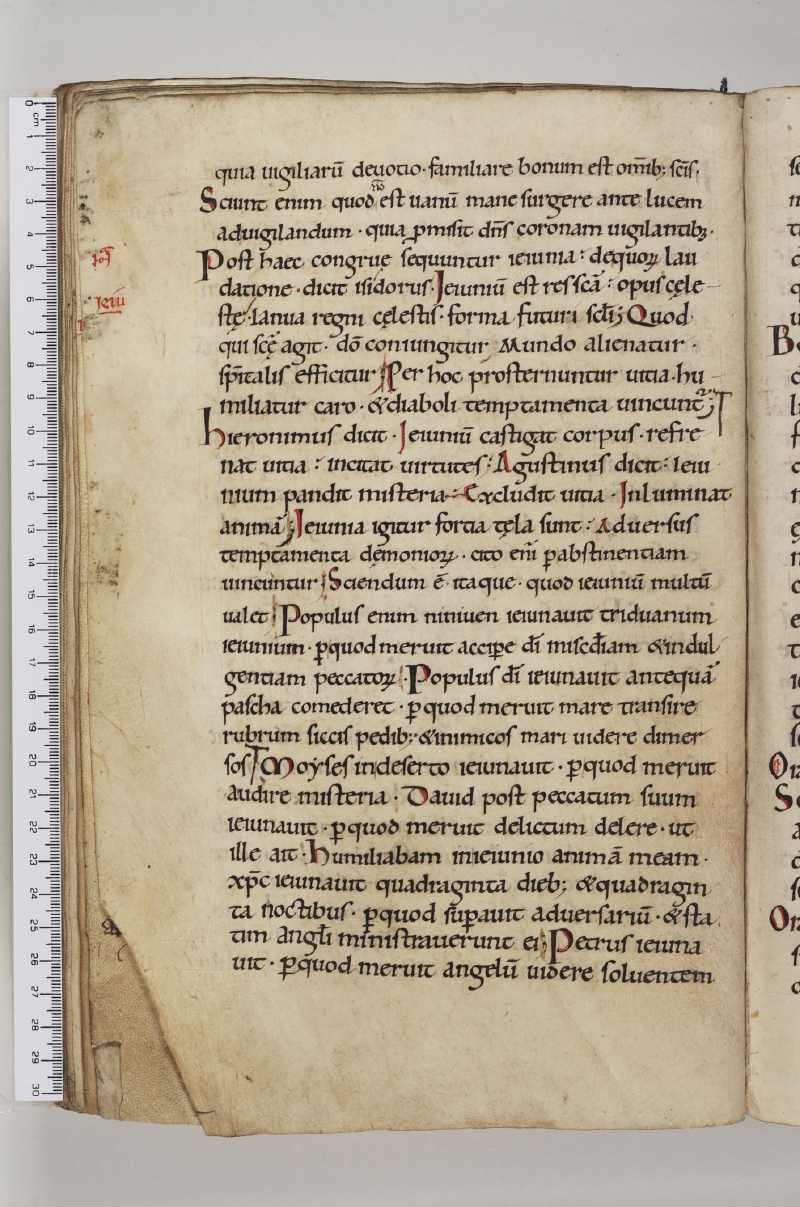 quia uigiliarū deuotio· familiare bonum est om̄ib; sc̄is·
Sciunt enim quod n̄o est uanū mane surgere ante lucem
aduigilandum · quia ꝓmisit dn̄s coronam uigilantib;·
Post haec congrue sequuntur ieiunia: dequoꝝ lau
datione· dicit isidorus· Ieiuniū est res sc̄a: opus cęle
stę· ianua regni cęlestis· forma futuri sc̄li; Quod
qui sc̄ę agit· dō coniungitur Mundo alienatur ·
sp̄italis efficitur; Per hoc prosternuntur uitia· hu
miliatur caro· &diaboli temptamenta uincunt᷑;
hieronimus dicit· Ieiuniū castigat corpus· refre
nat uitia: incitat uirtutes: Agustinus dicit: Ieiu
nium pandit misteria· Excludit uitia· Inluminat
animā; Ieiunia igitur fortia tęla sunt: Aduersus
temptamenta dęmonioꝝ· cito eni᷑ ꝑabstinentiam
uincuntur; Sciendum ē itaque· quod ieiuniū multū
ualet; Populus enim niniuen ieiunauit triduanum
ieiunium· ꝑquod meruit accipe dī misc̄diam &indul
gentiam peccatoꝝ; Populus dī ieiunauit antequā
pascha comederet· ꝑquod meruit mare transire
rubrum siccis pedib;· &inimicos mari uidere dimer
sos; Moyses indeserto ieiunauit· ꝑquod meruit
audire misteria· Dauid post peccatum suum
ieiunauit· ꝑquod meruit delictum delere· ut
ille ait· Humiliabam inieiunio animā meam·
xp̄c ieiunauit quadraginta dieb; &quadragin
ta noctibus· ꝑquod suꝑauit aduersariū· &sta
tim angl̄i ministrauerunt ei; Petrus ieiuna
uit· ꝑquod meruit angelū uidere soluentem
ieiu